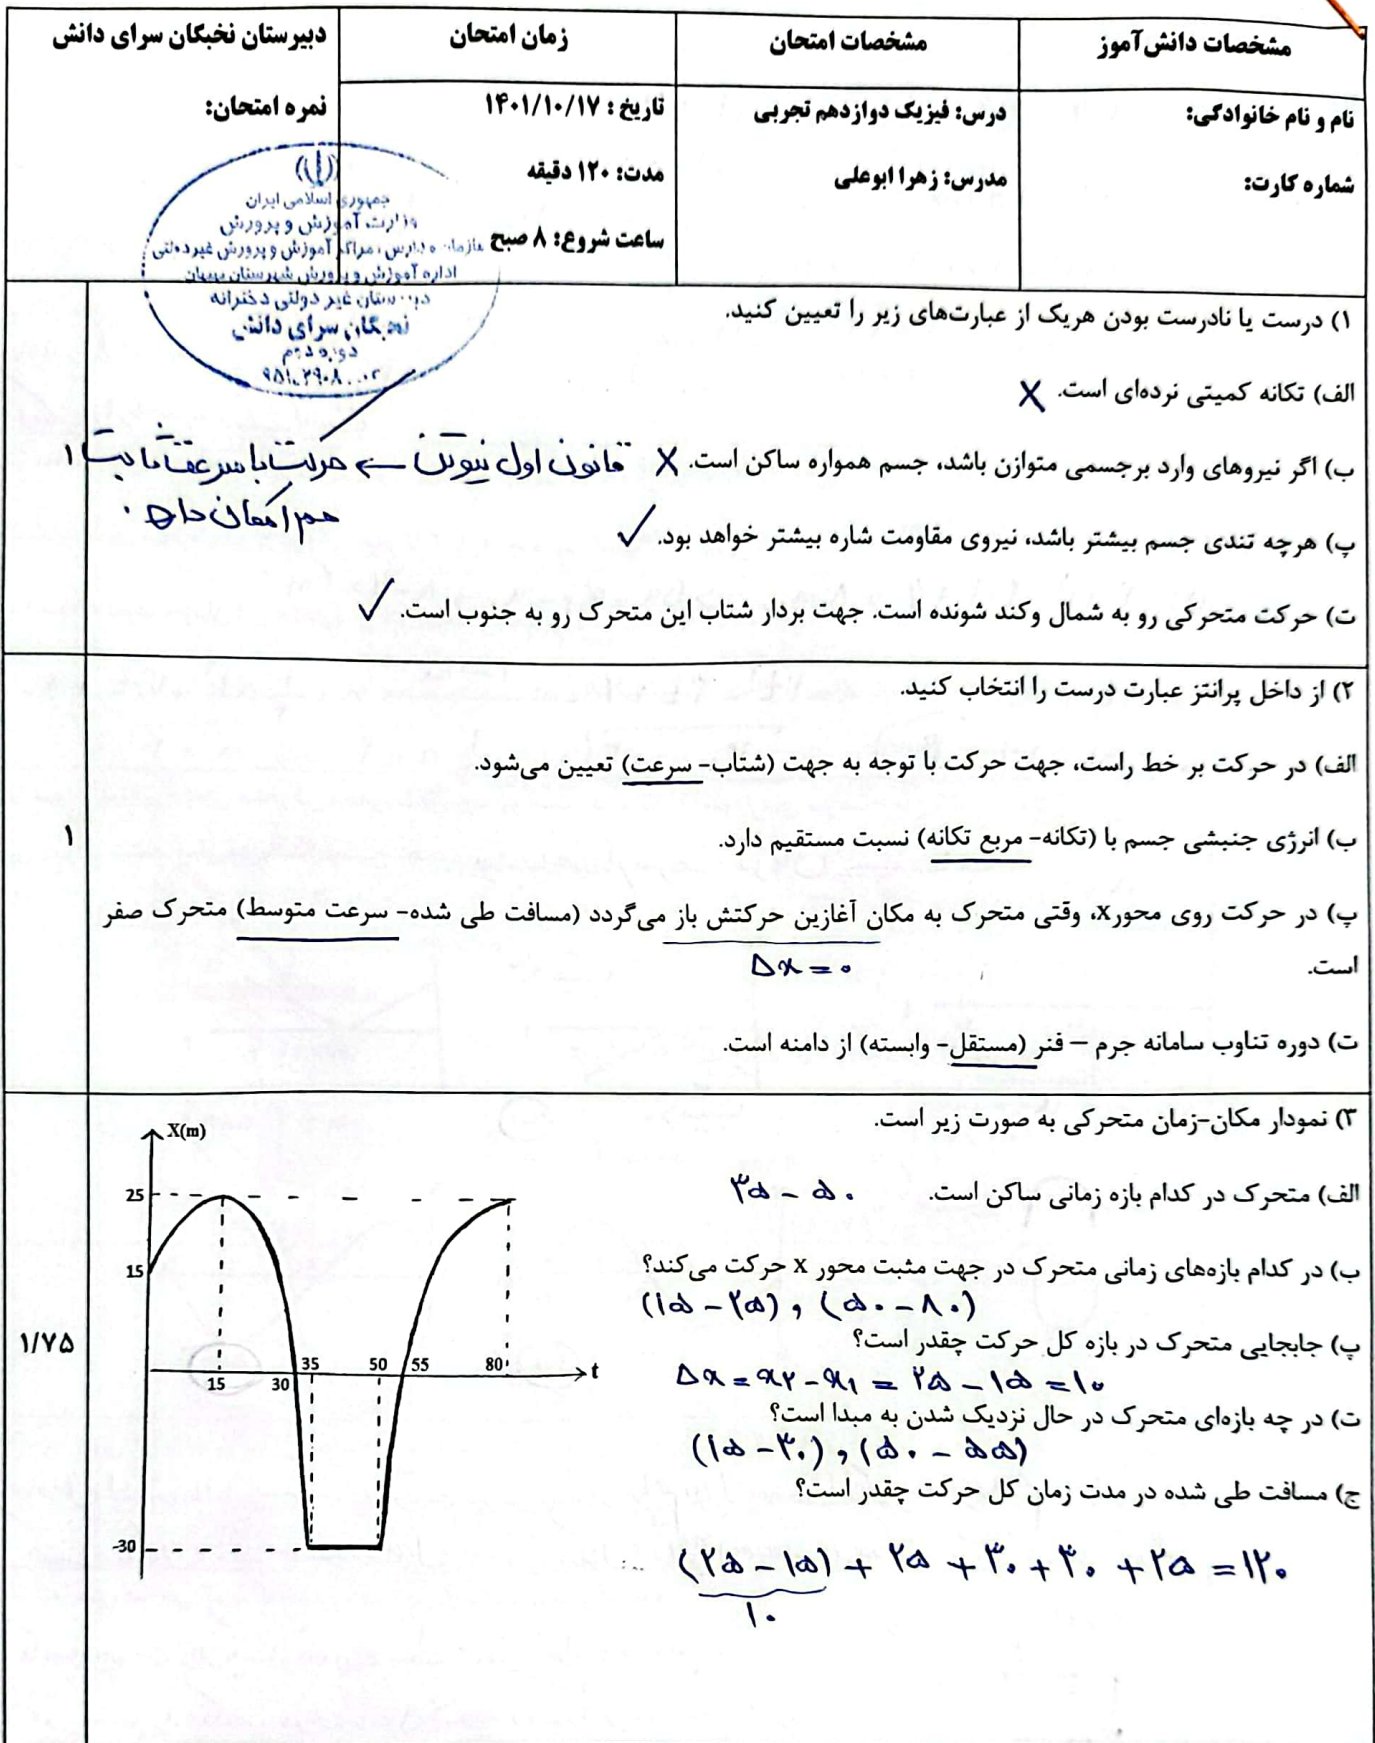 مشخصات دانش‌آموز
مشخصات امتحان
زمان امتحان
دبیرستان نخبگان سرای دانش
نام و نام خانوادگی:
شماره کارت:
درس: فیزیک دوازدهم تجربی
مدرس: زهرا ابوعلی
تاریخ: ۱۴۰۱/۱۰/۱۷
مدت: ۱۲۰ دقیقه
ساعت شروع: ۸ صبح
نمره امتحان:
جمهوری اسلامی ایران
وزارت آموزش و پرورش
سازمان مدارس و مراکز آموزش و پرورش غیردولتی
اداره آموزش و پرورش شهرستان بهبهان
دبیرستان غیر دولتی دخترانه
نخبگان سرای دانش
دوره دوم
۱) درست یا نادرست بودن هریک از عبارت‌های زیر را تعیین کنید.
الف) تکانه کمیتی نرده‌ای است. X
ب) اگر نیروهای وارد برجسمی متوازن باشد، جسم همواره ساکن است. X قانون اول نیوتن ← حرکت با سرعت ثابت
هم امکان دارد.
۱
پ) هرچه تندی جسم بیشتر باشد، نیروی مقاومت شاره بیشتر خواهد بود. ✓
ت) حرکت متحرکی رو به شمال وکند شونده است. جهت بردار شتاب این متحرک رو به جنوب است. ✓
۲) از داخل پرانتز عبارت درست را انتخاب کنید.
الف) در حرکت بر خط راست، جهت حرکت با توجه به جهت (شتاب- سرعت) تعیین می‌شود.
ب) انرژی جنبشی جسم با (تکانه- مربع تکانه) نسبت مستقیم دارد.
۱
پ) در حرکت روی محورx، وقتی متحرک به مکان آغازین حرکتش باز می‌گردد (مسافت طی شده- سرعت متوسط) متحرک صفر
است.
Δx = ۰
ت) دوره تناوب سامانه جرم – فنر (مستقل- وابسته) از دامنه است.
۳) نمودار مکان-زمان متحرکی به صورت زیر است.
الف) متحرک در کدام بازه زمانی ساکن است. ۳۵ - ۵۰
ب) در کدام بازه‌های زمانی متحرک در جهت مثبت محور x حرکت می‌کند؟
(۱۵ - ۲۵) , (۵۰ - ۸۰)
پ) جابجایی متحرک در بازه کل حرکت چقدر است؟
Δx = x۲ - x۱ = ۲۵ - ۱۵ = ۱۰
ت) در چه بازه‌ای متحرک در حال نزدیک شدن به مبدا است؟
(۱۵ - ۳۰) , (۵۰ - ۵۵)
ج) مسافت طی شده در مدت زمان کل حرکت چقدر است؟
(۲۵ - ۱۵) + ۲۵ + ۳۰ + ۳۰ + ۲۵ = ۱۲۰
۱۰
۱/۷۵
X(m)
25
15
35
50
55
80
t
15
30
-30